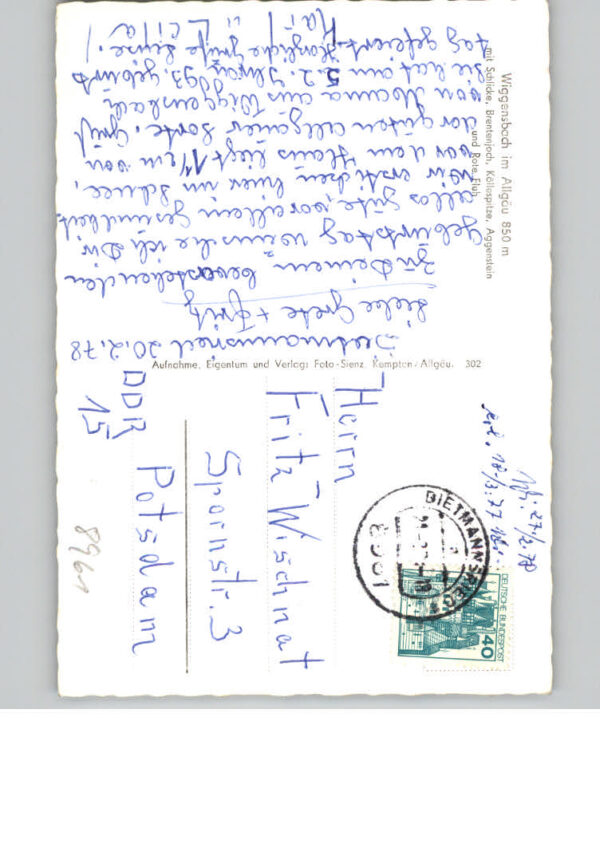 Wiggensbach im Allgäu 850 m
mit Schlicke, Brentenjoch, Köllespitze, Aggenstein
und Rote Flüh
20.2.78
Liebe Grete + Fritz
Zu Deinem bevorstehenden
Geburtstag wünsche ich Dir
alles gute, vor allem Gesundheit.
Wir ersticken hier im Schnee,
vor dem Haus liegt m von
der guten allgäuer Sorte. Gruß
von Mama aus Wiggensbach
Sie hat am 5.2. Ihren 93. geburts
tag gefeiert. Herzliche Grüße Eure.
Karl u.
Aufnahme, Eigentum und Verlag: Foto-Sienz, Kempten-Allgäu. 302
Herrn
Fritz Wischnat
Spornstr. 3
Potsdam
DDR
15
8961
27/2.78
DIETMANNSRIED
DEUTSCHE BUNDESPOST
40